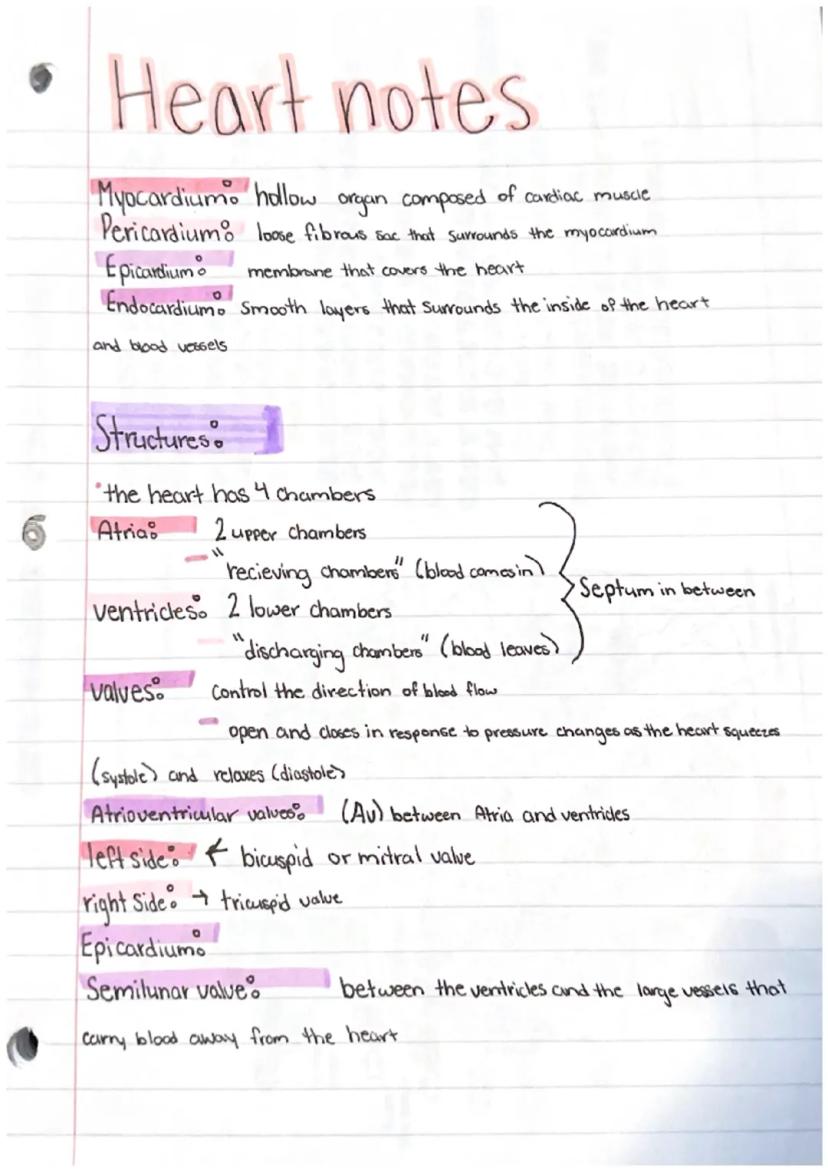 Heart notes
Myocardium: hollow organ composed of cardiac muscle
Pericardium: loose fibrous sac that surrounds the myocardium
Epicardium: membrane that covers the heart
Endocardium: smooth layers that surrounds the inside of the heart
and blood vessels
Structures:
•the heart has 4 chambers
Atria: 2 upper chambers
- "recieving chambers" (blood comes in)
Septum in between
ventricles: 2 lower chambers
- "discharging chambers" (blood leaves)
valves: control the direction of blood flow
- open and closes in response to pressure changes as the heart squeezes
(systole) and relaxes (diastole)
Atrioventricular valves: (AV) between Atria and ventricles
left side: ← bicuspid or mitral valve
right side: → tricuspid valve
Epicardium:
Semilunar valve: between the ventricles and the large vessels that
carry blood away from the heart